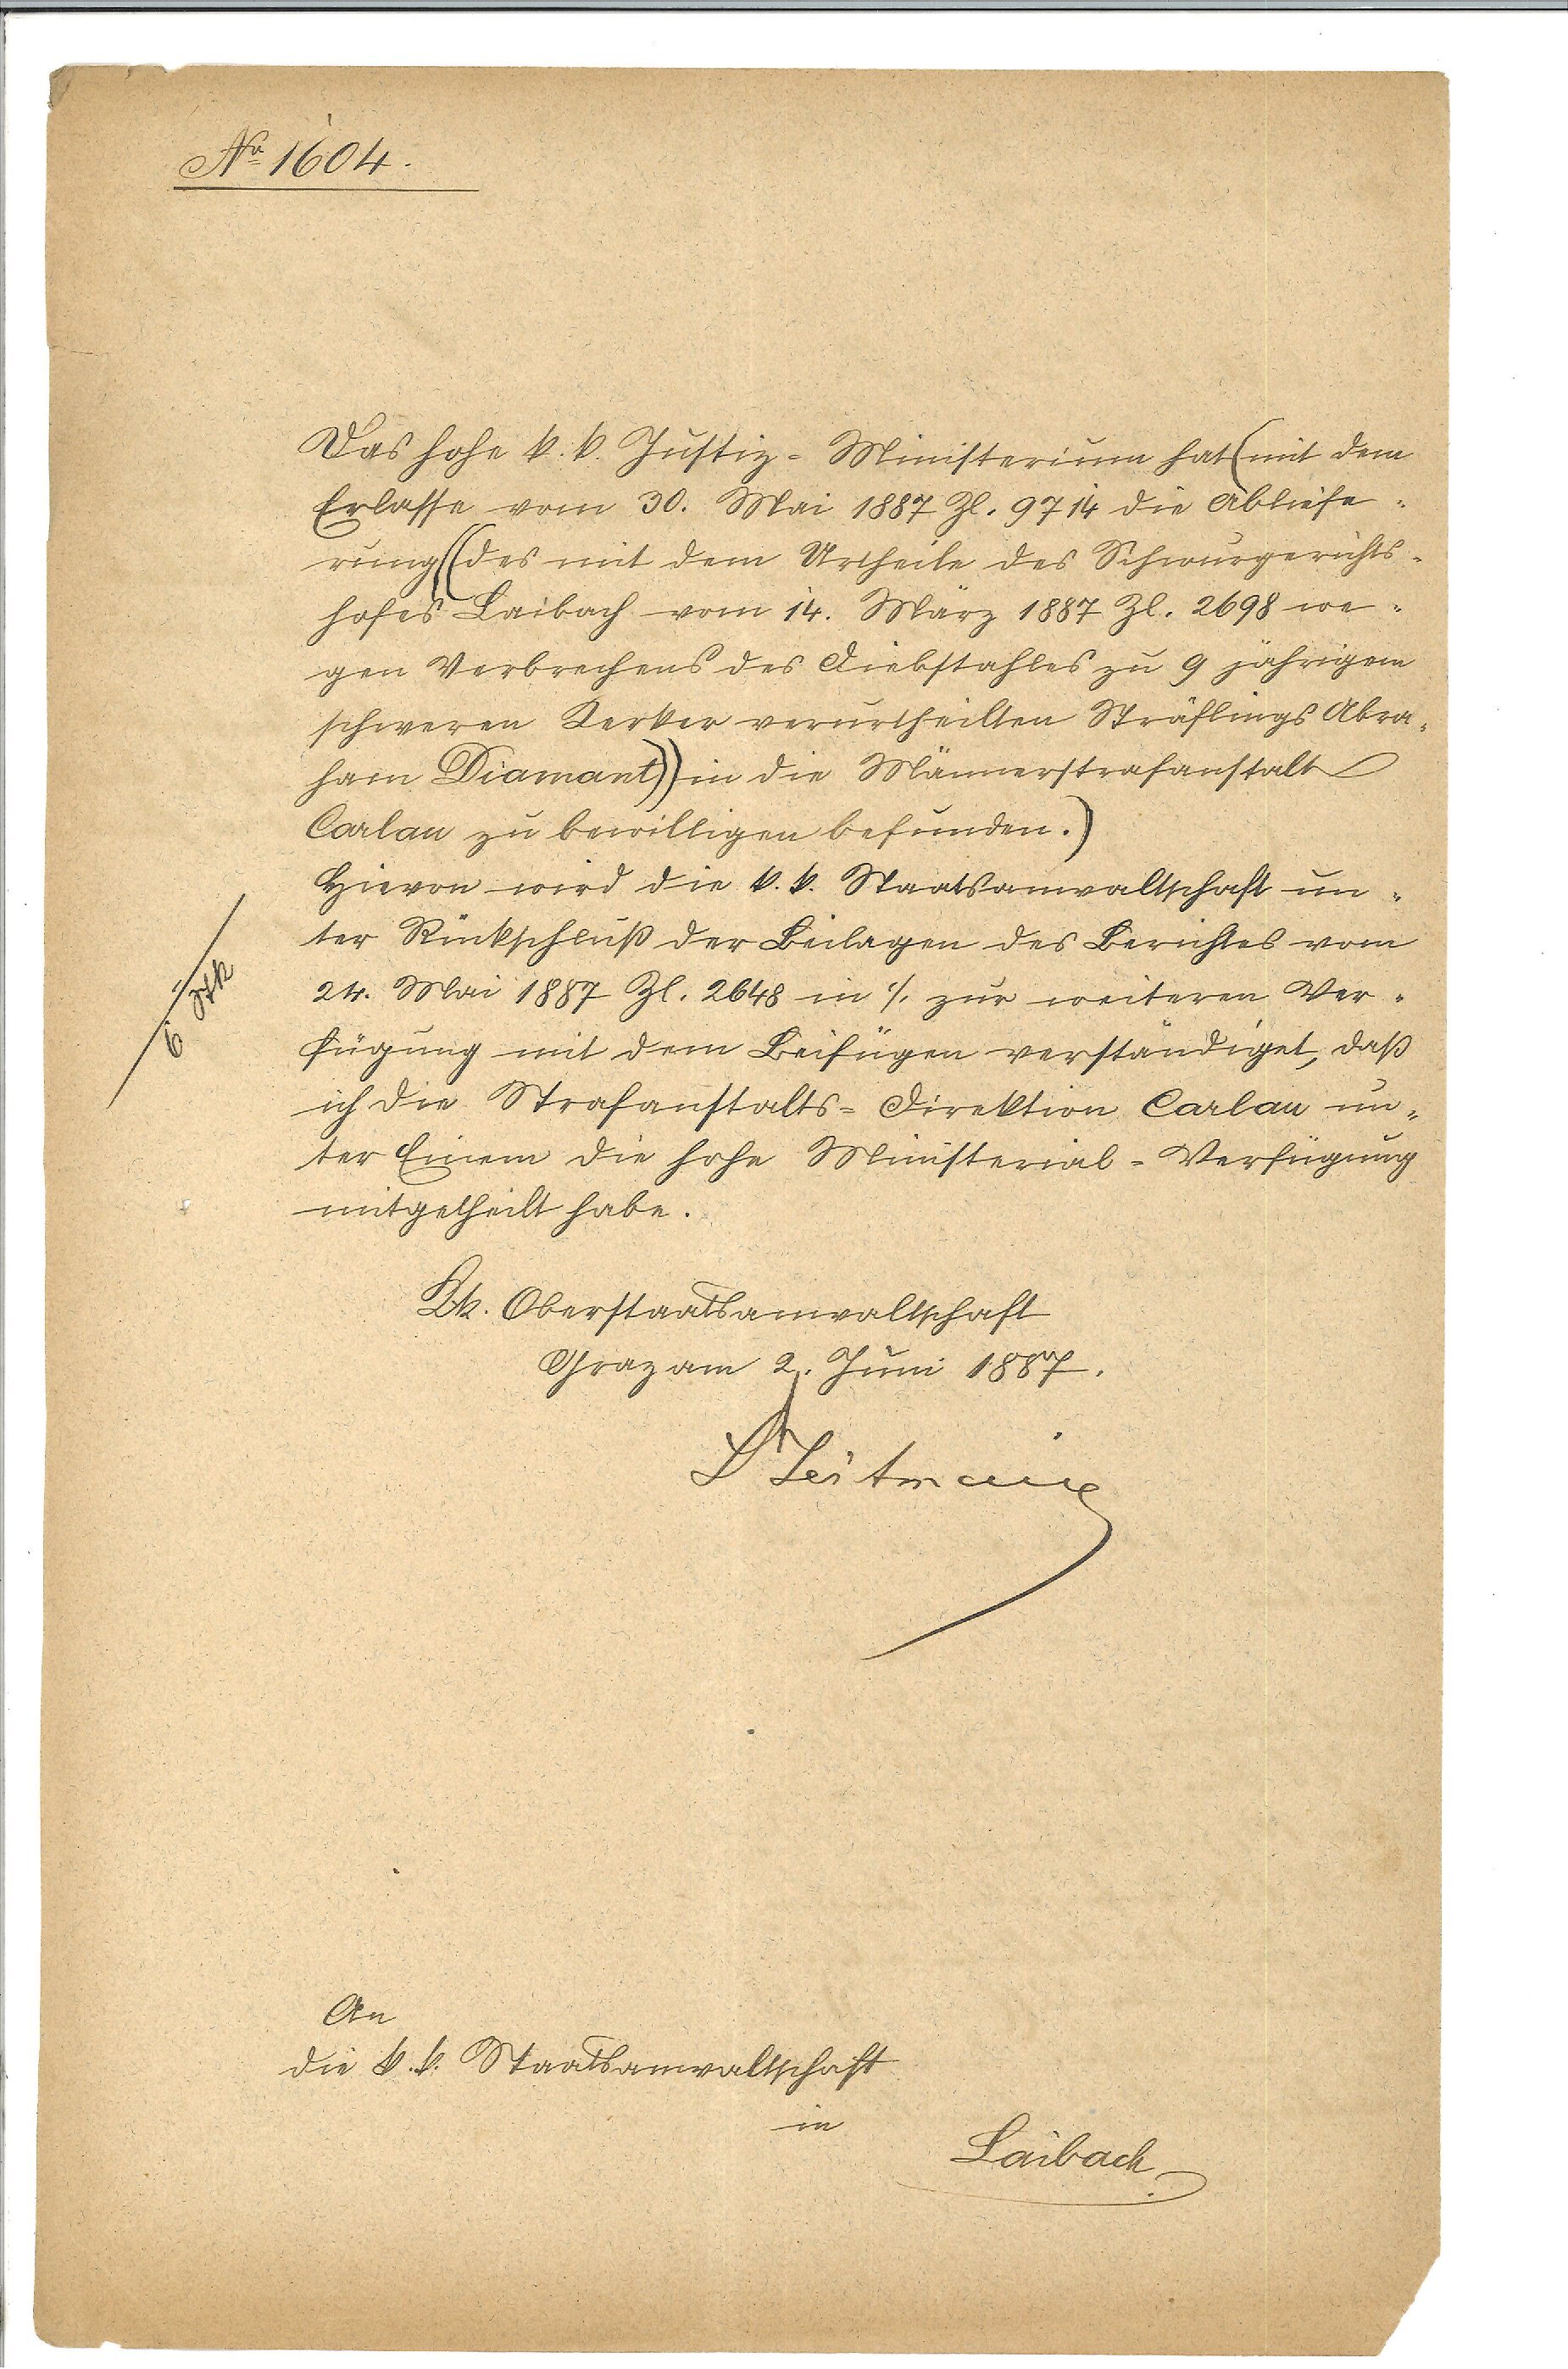 No 1604.
Das hohe k. k. Justiz- Ministerium hat (mit dem
Erlasse vom 30. Mai 1887 Zl. 9714 die Abliefe-
rung ((des mit dem Urtheile des Schwurgerichts-
hofes Laibach vom 14. März 1887 Zl. 2698 we-
gen Verbrechens des Diebstahles zu 9 jährigem
schweren Kerker verurtheilten Sträflings Abra-
ham Diamant)) in die Männerstrafanstalt
Carlau zu bewilligen befunden.)
Hievon wird die k. k. Staatsanwaltschaft un-
ter Rückschluß der Beilagen des Berichtes vom
24. Mai 1887 Zl. 2648 in ·/. zur weiteren Ver-
fügung mit dem Beifügen verständiget, daß
ich die Strafanstalts- Direktion Carlau un-
ter Einem die hohe Ministerial- Verfügung
mitgetheilt habe.
6 Stk
K.k. Oberstaatsanwaltschaft
Graz am 2. Juni 1887.
An
die k. k. Staatsanwaltschaft
in
Laibach.